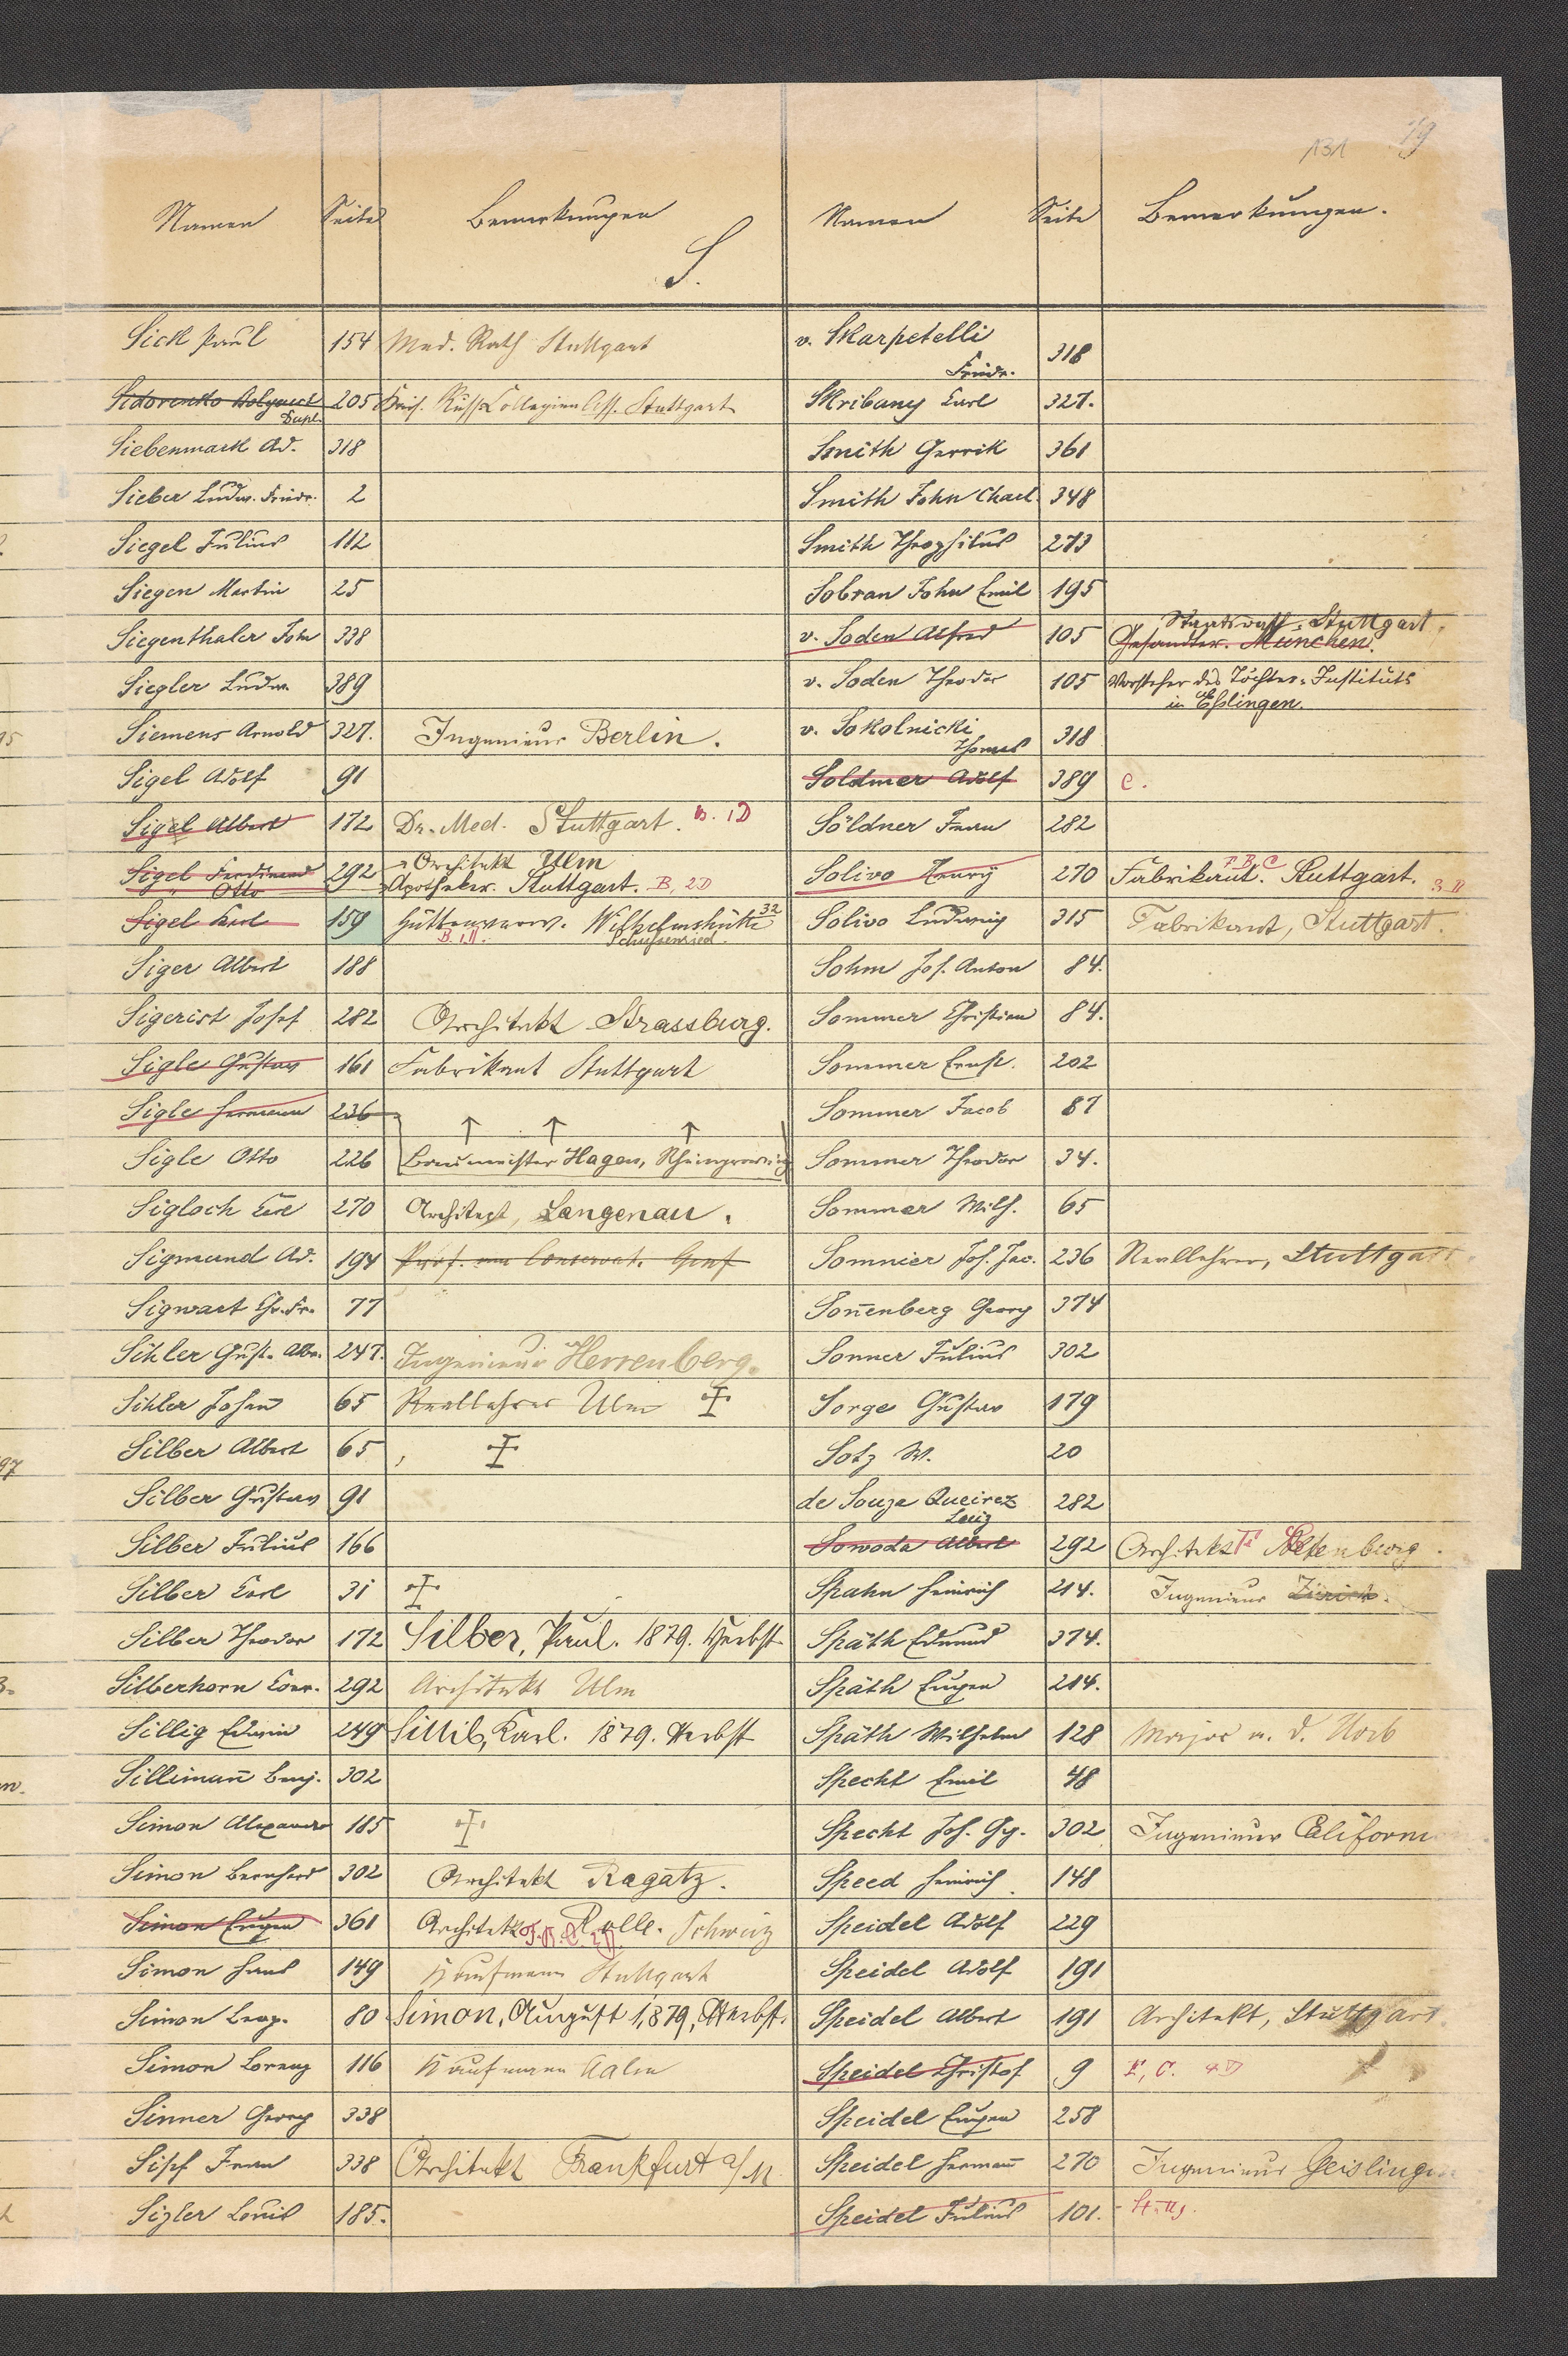 131 19
Namen Seite Bemerkungen
S.
Sick Paul 154 Med. Rath Stuttgart
Sidorenko 205 Kais. Russ. Collegien Ass. Stuttgart
Siebenmark Ad. 318
Sieber Ludw. Friedr. 2
Siegel Julius 112
Siegen Martin 25
Siegenthaler Joh 338
Siegler Ludw. 389
Siemens Arnold 327. Ingenieur Berlin.
Sigel Adolf 91
Sigel Albert 172 Dr. Med. Stuttgart. B. 1D
Sigel Ferdinand 292 Architekt Ulm
" Otto Apotheker. Stuttgart. B, 2D
Sigel Karl 159 Hüttenverw. Wilhelmshütte 32
B. 1D. Schussenried.
Siger Albert 188
Sigerist Josef 282 Architekt Strassburg.
Sigle Gustav 161 Fabrikant Stuttgart
Sigle Hermann 236
Sigle Otto 226 Baumeister Hagen, Rheinprovinz
Sigloch Carl 270 Architect, Langenau.
Sigmund Ad. 194 Prof. am Conservat. Genf
Sigwart Chr. Fr. 77
Sihler Gust. Alb. 247. Ingenieur Herrenberg.
Sihler Johañ 65 Reallehrer Ulm
Silber Albert 65
Silber Gustav 91
Silber Julius 166
Silber Carl 31
Silber Theodor 172 Silber, Paul. 1879. Herbst
Silberhorn Conr. 292 Architekt Ulm
Sillig Edwin 249 Sillib, Karl. 1879. Herbst
Sillimañ Benj. 302
Simon Alexander 185
Simon Bernhard 302 Architekt Ragatz.
Simon Eugen 361 Architekt Rolle. Schweiz
Simon Hans 149 Kaufmann Stuttgart
Simon Leop. 80 Simon, August 1,879, Herbst.
Simon Lorenz 116 Kaufmann Aalen
Sinner Georg 338
Sipf Franz 338 Architekt Frankfurt a/M
Sizler Louis 185.
Namen Seite Bemerkungen.
v. Skarpetelli
Friedr. 318
Skribany Carl 327.
Smith Gerrik 361
Smith John Charl. 348
Smith Theophilus 273
Sobran John Emil 195
v. Soden Alfred 105 Staatsrath, Stuttgart.
Gesandter. München.
v. Soden Theodor 105 Vorsteher des Töchter-Instituts
in Eßlingen.
v. Sokolnicki
Thomas 318
Soldmer Adolf 389 C.
Söldner Franz 282
Solivo Henry 270 Fabrikant. F. B. C Stuttgart. 3 D
Solivo Ludwig 315 Fabrikant, Stuttgart.
Sohm Jos. Anton 84.
Sommer Christian 84.
Sommer Ernst. 202
Sommer Jacob 87
Sommer Theodor 34.
Sommer Wilh. 65
Somnier Joh. Jac. 236 Reallehrer, Stuttgart
Soñenberg Georg 374
Sonner Julius 302
Sorge Gustav 179
Sotz W. 20
de Souza Queirez
Luiz 282
Sowoda Albert 292 Architekt Altenburg.
Spahn Heinrich 214. Ingenieur Zürich.
Späth Edmund 374.
Späth Eugen 214.
Späth Wilhelm 128 Major a. D. Horb
Specht Emil 48
Specht Joh. Gg. 302 Ingenieur Californ
Speed Heinrich 148
Speidel Adolf 229
Speidel Adolf 191
Speidel Albert 191 Architekt, Stuttgart
Speidel Christof 9 F, C. 4 D
Speidel Eugen 258
Speidel Hermañ 270 Ingenieur Geislinge
Speidel Julius 101. Stuttg.